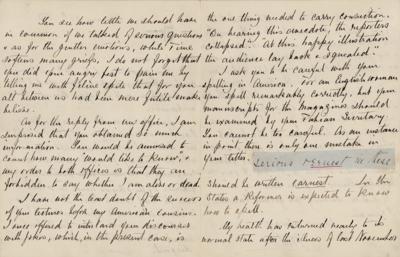 You see how little we should have
in common if we talked of serious questions
& as for the gentler emotions, while Time
softens many griefs, I do not forget that
you did your angry best to pain me by
telling me with feline spite that for you
all between us had been mere futile make
believe.
As for the reply from our office, I am
surprised that you obtained so much
information. You would be amused to
count how many would like to know, &
my order to both offices is that they are
forbidden to say whether I am alive or dead.
I have not the least doubt of the success
of your lectures before my American cousins.
I once offered to interlard your discourses
with jokes, which, in the present case, is
the one thing needed to carry conviction.
On hearing this anecdote, the reporters
collapsed. At this happy illustration
the audience lay back & squealed.
I ask you to be careful with your
spelling in America. For an English woman
you spell remarkably correctly, but your
manuscripts for the Magazines should
be examined by your Tuskean Secretary.
You cannot be too careful. As an instance
in point there is only one mistake in
your letter.
Serious earnest
should be written earnest. In the
States a Reformer is expected to know
how to spell.
My health has returned nearly to its
normal state after the illness of last November